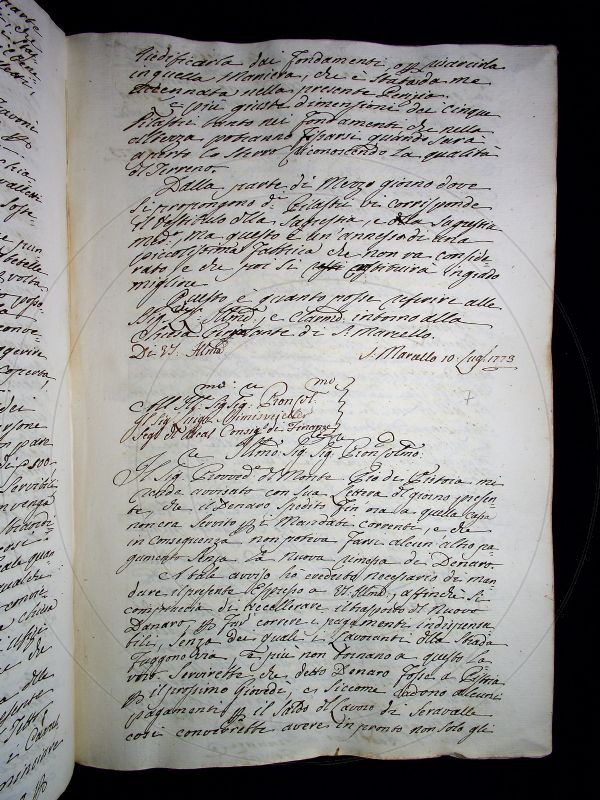 Riedificarla dai Fondamenti, o ꝑ
in quella Maniera, che è Stata da me
accennata nella presente Perizia.
e più giuste dimensioni dei cinque
Pilastri tanto nei Fondamenti che nella
altezza potranno fissarsi quando sarà
aperto lo Sterro, e riconoscendo la qualità
di Terreno.
Dalla parte di Mezzo giorno dove
si propongono di Pilastri vi corrisponde
il Vestibulo della Sagrestia, e la Sagrestia
med., ma questo è un annesso di una
piccolissima Fabbrica che non va conside
rato, e che poi si costituirà in grado
migliore.
Questo è quanto posso referire alle
SSig. VV. Illme, e Clarme intorno alla
Chiesa di S. Marcello.
Di VS. Illma
S. Marcello 10. Lugl. 1773
7
All. Ill. Sig. Sig. Pron. Col.
Il Sig.
Seg. di Real Consig. di Finanze
Illmo Sig. Sig. Pron. Colmo
Il Sig. Provved. di Monte Pio di Pistoia mi
ha dato avviso con sua Lettera di giorno presen
te, che il Denaro Spedito fin ora a quella Cassa
non era servito ꝑ i Mandati correnti, e che
in conseguenza non poteva farsi alcun'altro pa
gamento senza la nuova rimessa di Denaro.
A tale avviso ho creduto necessario di man
dare il presente Espresso a VS. Illma, affinchè si
compiaccia di accellerare il trasporto del nuovo
Danaro, ꝑ i pagamenti indispensa
bili, senza dei quali i Lavoranti della Strada
Fuggono via e più non tornano a questo la
voro. Servirebbe che detto Denaro fosse a Pistoia
ꝑ il prossimo Giovedì, e siccome cadono alcuni
pagamenti ꝑ il Saldo di Lavoro di Seravalle
così converrebbe avere in pronto non solo gli